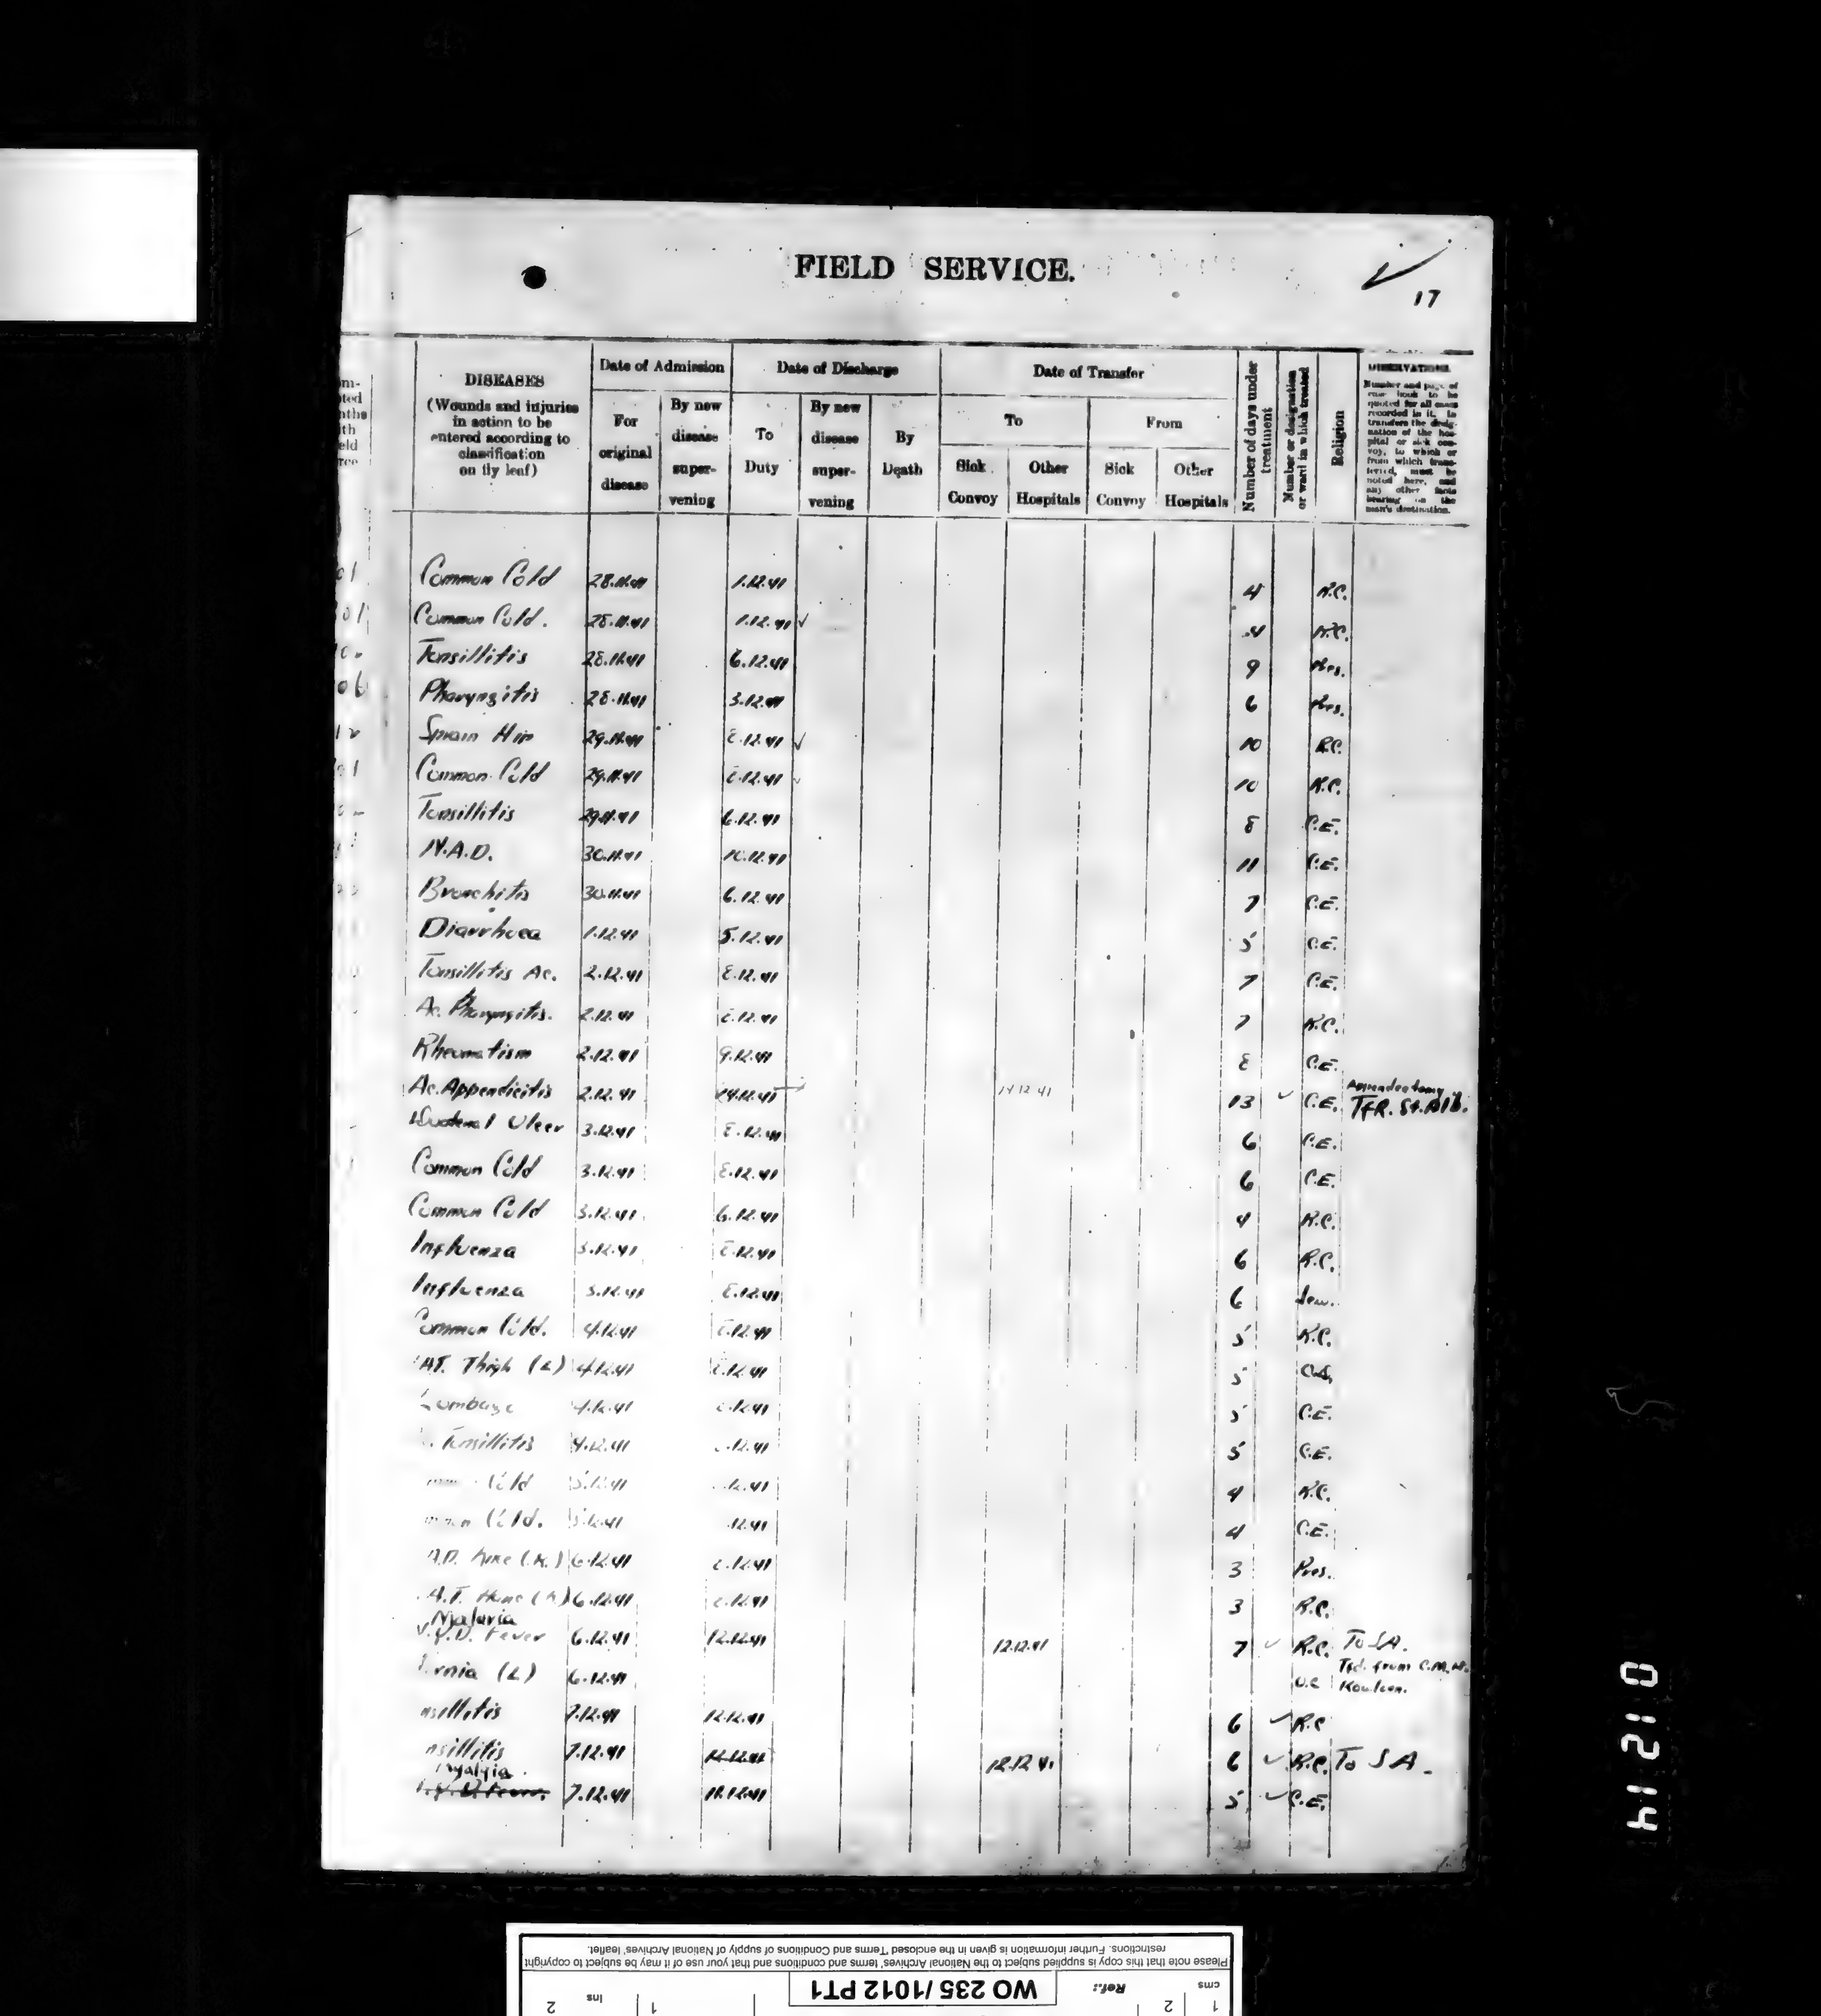 FIELD SERVICE.
17
DISEASES
(Wounds and injuries
in action to be
entered according to
classification
on fly leaf)
Date of Admission
For
original
disease
By new
disease
super-
vening
Date of Discharge
To
Duty
By new
disease
super-
vening
By
Death
Date of Transfer
To
Sick
Convoy
Other
Hospitals
From
Sick
Convoy
Other
Hospitals
Number of days under
treatment
Number or designation
or ward in which treated
Religion
OBSERVATIONS.
Number and page of
case book to be
quoted for all cases
recorded in it. In
transfers the desig-
nation of the hos-
pital or sick con-
voy, to which or
from which trans-
ferred, must be
noted here, and
any other facts
bearing on the
man's destination.
Common Cold 28.11.41 1.12.41 4 R.C.
Common Cold. 28.11.41 1.12.41 4 R.C.
Tonsillitis 28.11.41 6.12.41 9 Pres.
Pharyngitis 28.11.41 3.12.41 6 Pres.
Sprain Hip 29.11.41 8.12.41 10 R.C.
Common Cold 29.11.41 8.12.41 10 R.C.
Tonsillitis 29.11.41 6.12.41 8 C.E.
N.A.D. 30.11.41 10.12.41 11 C.E.
Bronchitis 30.11.41 6.12.41 7 C.E.
Diarrhoea 1.12.41 5.12.41 5 C.E.
Tonsillitis Ac. 2.12.41 8.12.41 7 C.E.
Ac. Pharyngitis. 2.12.41 8.12.41 7 R.C.
Rheumatism 2.12.41 9.12.41 8 C.E.
Ac. Appendicitis 2.12.41 14.12.41 14 12 41 13 C.E. Appendectomy
TFR. St. Alb.
Ulcer 3.12.41 8.12.41 6 C.E.
Common Cold 3.12.41 8.12.41 6 C.E.
Common Cold 3.12.41 6.12.41 4 R.C.
Influenza 3.12.41 8.12.41 6 R.C.
Influenza 3.12.41 8.12.41 6 Jew.
Common Cold. 4.12.41 8.12.41 5 R.C.
Thigh (L) 4.12.41 8.12.41 5
Lumbago 4.12.41 8.12.41 5 C.E.
Tonsillitis 4.12.41 .12.41 5 C.E.
Cold 5.12.41 .12.41 4 R.C.
mmon Cold. 5.12.41 12.41 4 C.E.
Knee (R.) 6.12.41 8.12.41 3 Pres.
6.12.41 8.12.41 3 R.C.
Malaria
Fever 6.12.41 12.12.41 12.12.41 7 R.C. To S.A.
rnia (L) 6.12.41 Tfd. from C.M.H.
Kowloon.
nsillitis 7.12.41 12.12.41 6 R.C
nsillitis 7.12.41 12.12.41 12.12 41 6 R.C. To S A.
Myalgia.
7.12.41 11.12.41 5 C.E.
01214
Please note that this copy is supplied subject to the National Archives' terms and conditions and that your use of it may be subject to copyright
restrictions. Further information is given in the enclosed 'Terms and Conditions of supply of National Archives' leaflet.
cms 1 2 Ref.: WO 235/1012 PT1
1 ins 2